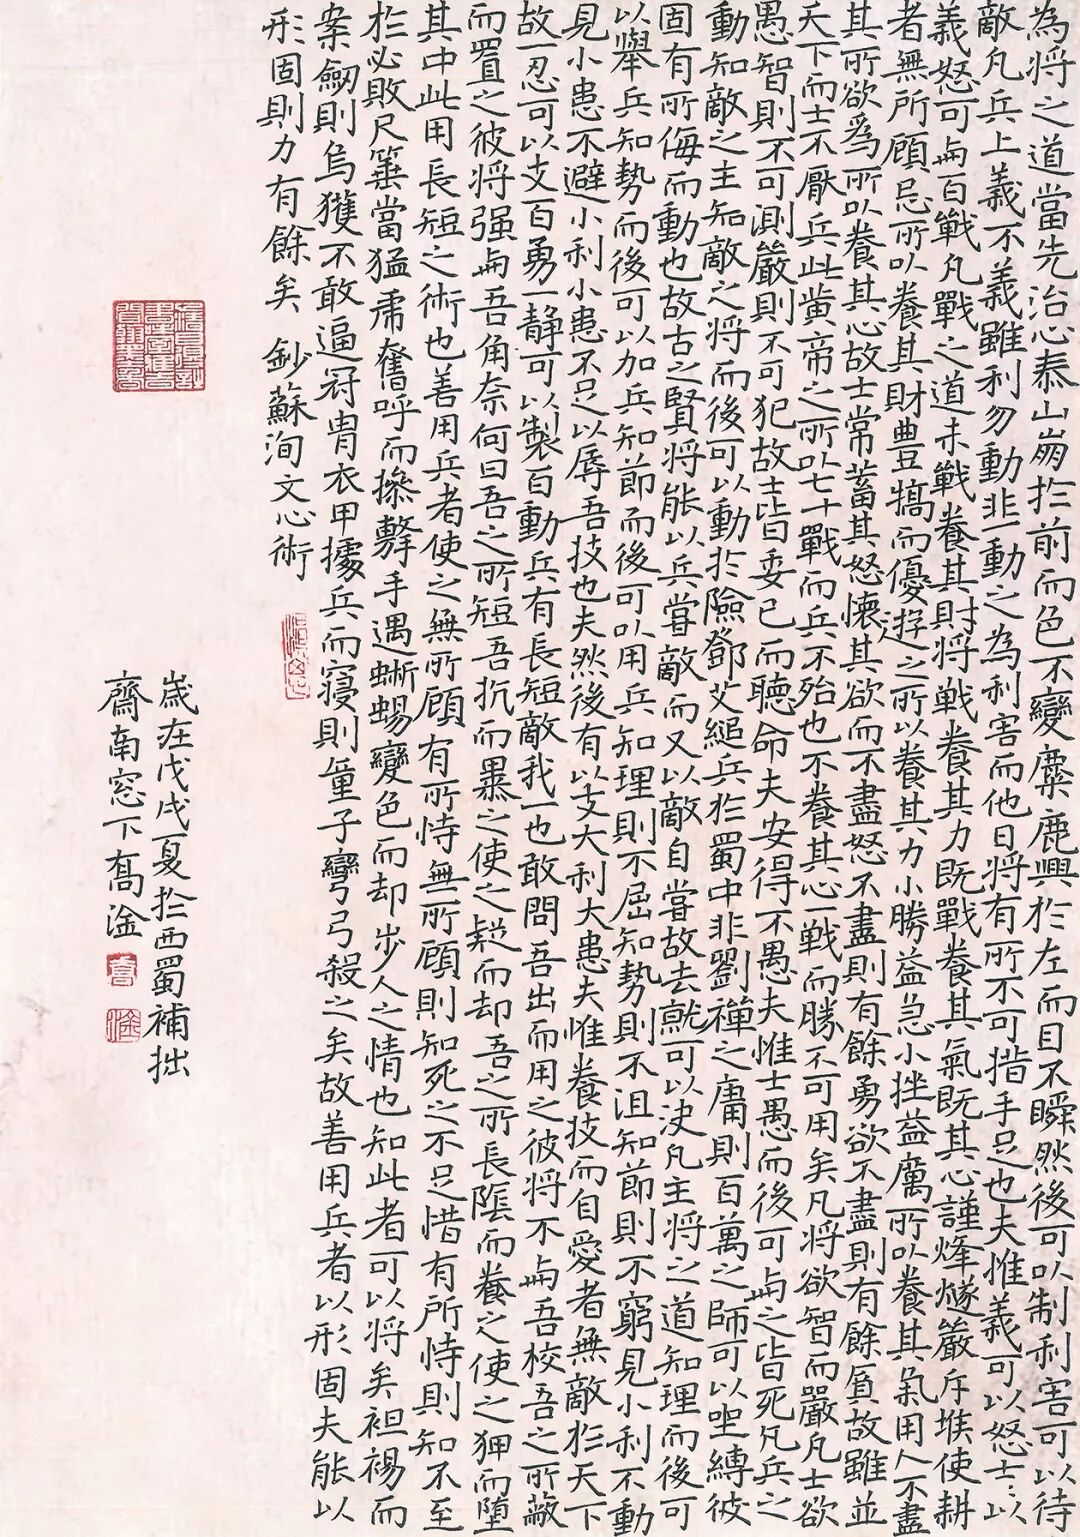 為將之道當先治心泰山崩於前而色不變麋鹿興於左而目不瞬然後可以制利害可以待
敵凡兵上義不義雖利勿動非一動之為利害而他日將有所不可措手足也夫惟義可以怒士士以
義怒可與百戰凡戰之道未戰養其財將戰養其力既戰養其氣既其心謹烽燧嚴斥堠使耕
者無所顧忌所以養其財豊犒而優游之所以養其力小勝益急小挫益厲所以養其氣用人不盡
其所欲爲所以養其心故士常蓄其怒懷其欲而不盡怒不盡則有餘勇欲不盡則有餘貭故雖並
天下而士不厭兵此黄帝之所以七十戰而兵不殆也不養其心一戰而勝不可用矣凡將欲智而嚴凡士欲
愚智則不可測嚴則不可犯故士皆委已而聽命夫安得不愚夫惟士愚而後可與之皆死凡兵之
動知敵之主知敵之將而後可以動於險鄧艾縋兵於蜀中非劉禪之庸則百萬之師可以坐縛彼
固有所侮而動也故古之賢將能以兵嘗敵而又以敵自嘗故去就可以决凡主將之道知理而後可
以舉兵知勢而後可以加兵知節而後可以用兵知理則不屈知勢則不沮知節則不窮見小利不動
見小患不避小利小患不足以辱吾技也夫然後有以支大利大患夫惟養技而自愛者無敵於天下
故一忍可以支百勇一静可以製百動兵有長短敵我一也敢問吾出而用之彼將不與吾校吾之所蔽
而置之彼將强與吾角奈何曰吾之所短吾抗而暴之使之疑而却吾之所長隂而養之使之狎而墮
其中此用長短之術也善用兵者使之無所顧有所恃無所顧則知死之不足惜有所恃則知不至
於必敗尺箠當猛虎奮呼而操擊手遇蜥蜴變色而却步人之情也知此者可以將矣袒裼而
案劒則烏獲不敢逼冠胄衣甲據兵而寢則童子彎弓殺之矣故善用兵者以形固夫能以
形固則力有餘矣 鈔蘇洵文心術
歲在戊戌夏於西蜀補拙
齋南窓下髙淦